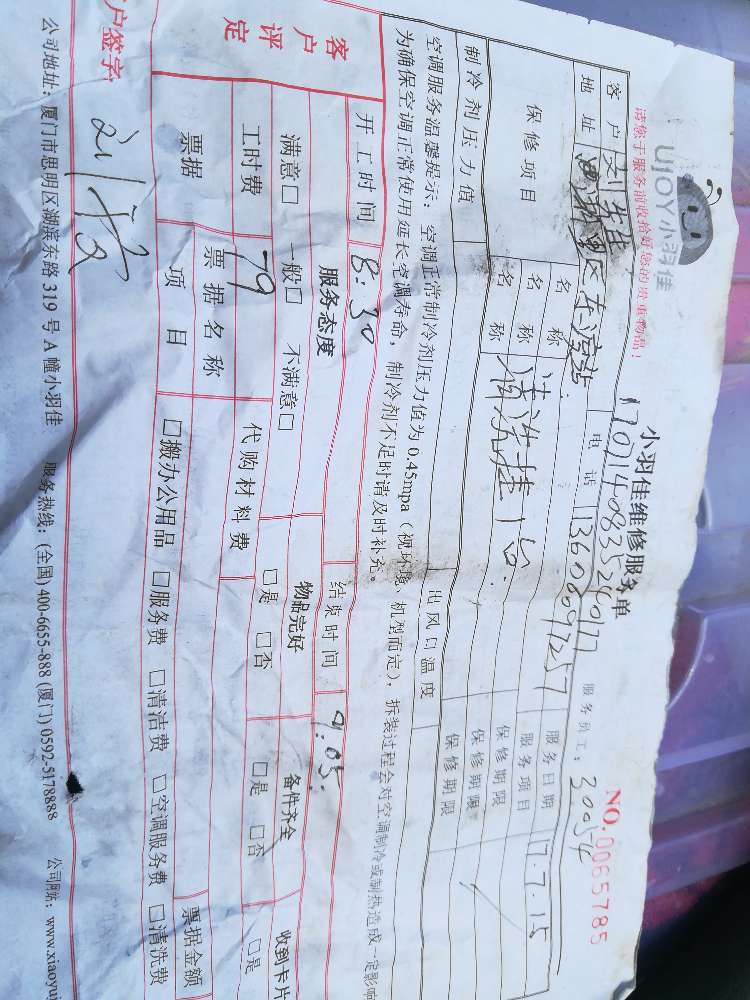 UJOY小羽佳
请您于服务前收拾好您的贵重物品！
小羽佳维修服务单
NO.0065785
服务员工：30054
客户 刘先生 电话 13606097257 服务日期 17.7.15
地址 服务项目
保修项目 名称 保修期限
名称 清洗挂1台. 保修期限
名称 保修期限
制冷剂压力值 出风口温度
空调服务温馨提示：空调正常制冷剂压力值为0.45mpa（视环境、机型而定），拆装过程会对空调制冷或制热造成一定影响
为确保空调正常使用延长空调寿命，制冷剂不足时请及时补充。
开工时间 8:30 结束时间 9:05.
客户评定
服务态度 物品完好 备件齐全 收到卡片
满意□ 一般□ 不满意□ □是 □否 □是 □否 □是
工时费 79 代购材料费
票据 票据名称 票据金额
项目 □搬办公用品 □服务费 □清洁费 □空调服务费 □清洗费
户签字
公司地址：厦门市思明区湖滨东路319号A幢小羽佳 服务热线：(全国) 400-6655-888 (厦门) 0592-5178888 公司网站：www.xiaoyuj